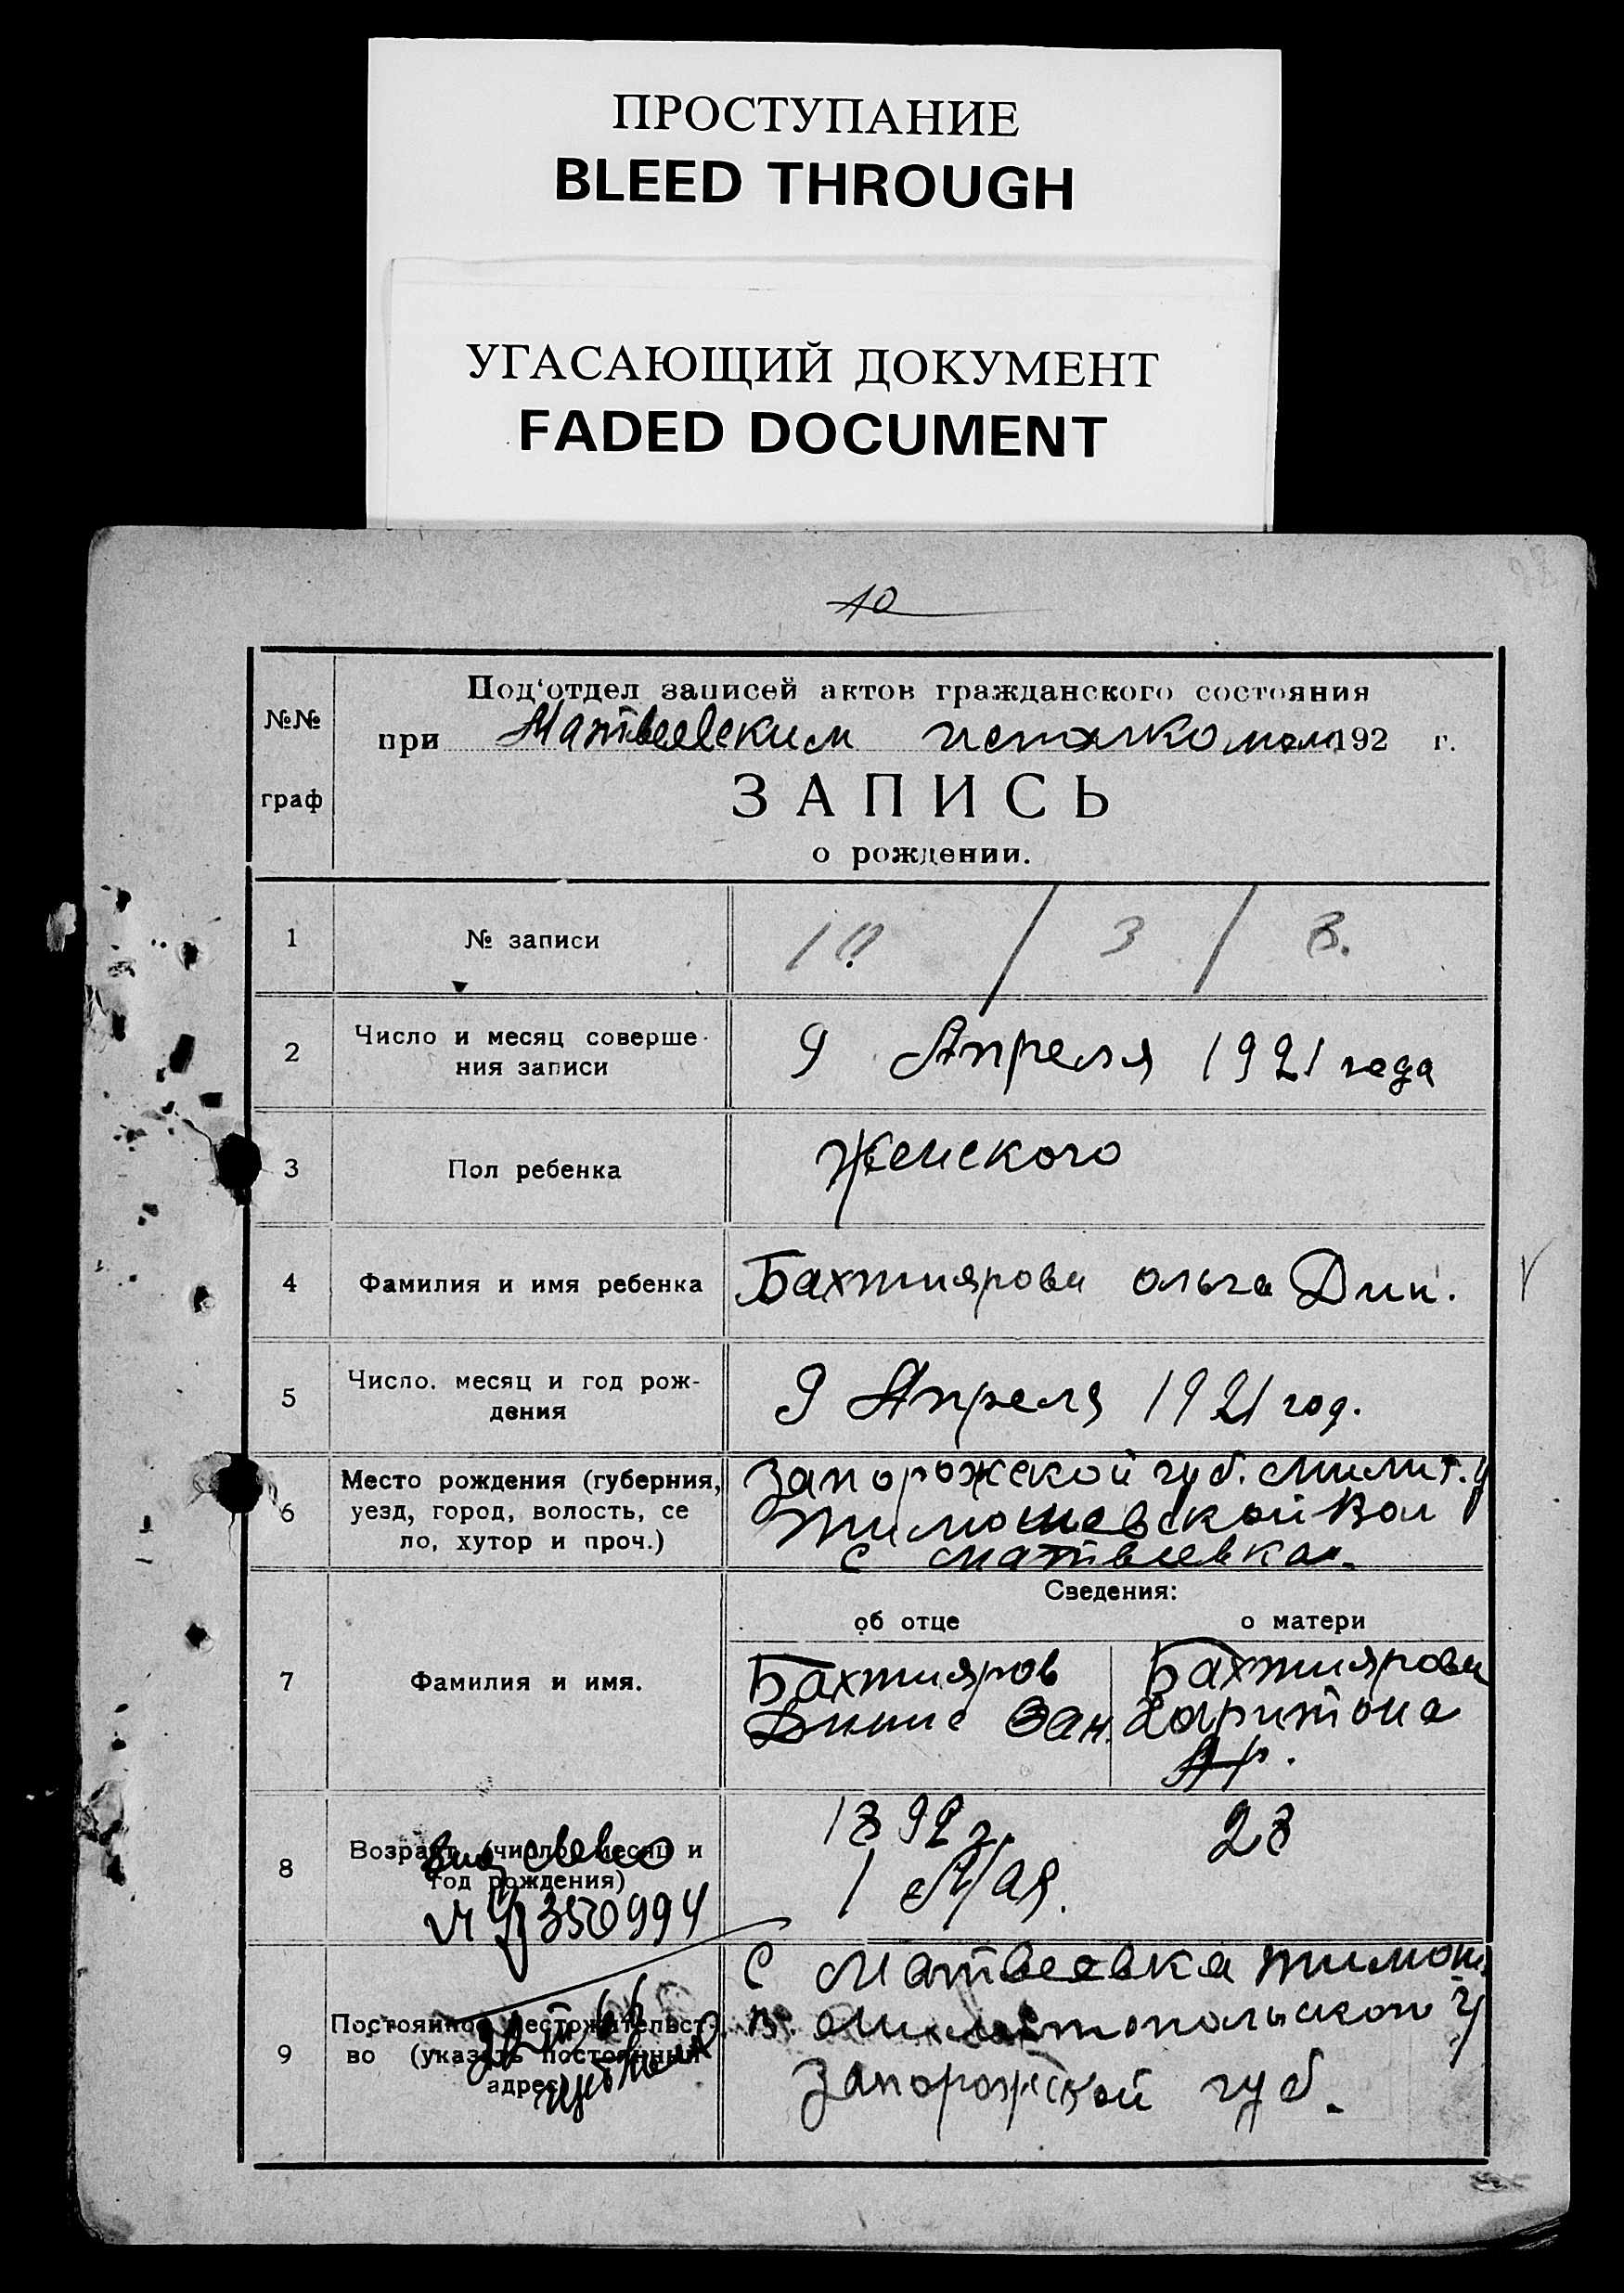 ПРОСТУПАНИЕ
BLEED THROUGH
УГАСАЮЩИЙ ДОКУМЕНТ
FADED DOCUMENT
10
№№ граф
Под'отдел записей актов гражданского состояния
при Матвеевским исполкомом 192 г.
ЗАПИСЬ
о рождении.
1 № записи 10 / 3 / 8.
2 Число и месяц соверше-
ния записи 9 Апреля 1921 года
3 Пол ребенка Женского
4 Фамилия и имя ребенка Бахтиярова Ольга Дин.
5 Число. месяц и год рож-
дения 9 Апреля 1921 год.
6 Место рождения (губерния, Запорожской губ. Милит. у
уезд, город, волость, се Тимошевской Вол
ло, хутор и проч.) с Матвеевка
Сведения:
об отце о матери
7 Фамилия и имя. Бахтияров Бахтиярова
Динис Зан. Харитона
Ар.
8 Возраст (число, месяц и 1892 г. 28
год рождения) 1 Мая.
350994
9 Постоянное местожительст- с Матвеевка Тимош.
во (указать постоянный в. Милитопольской у
адрес) Запорожской губ.